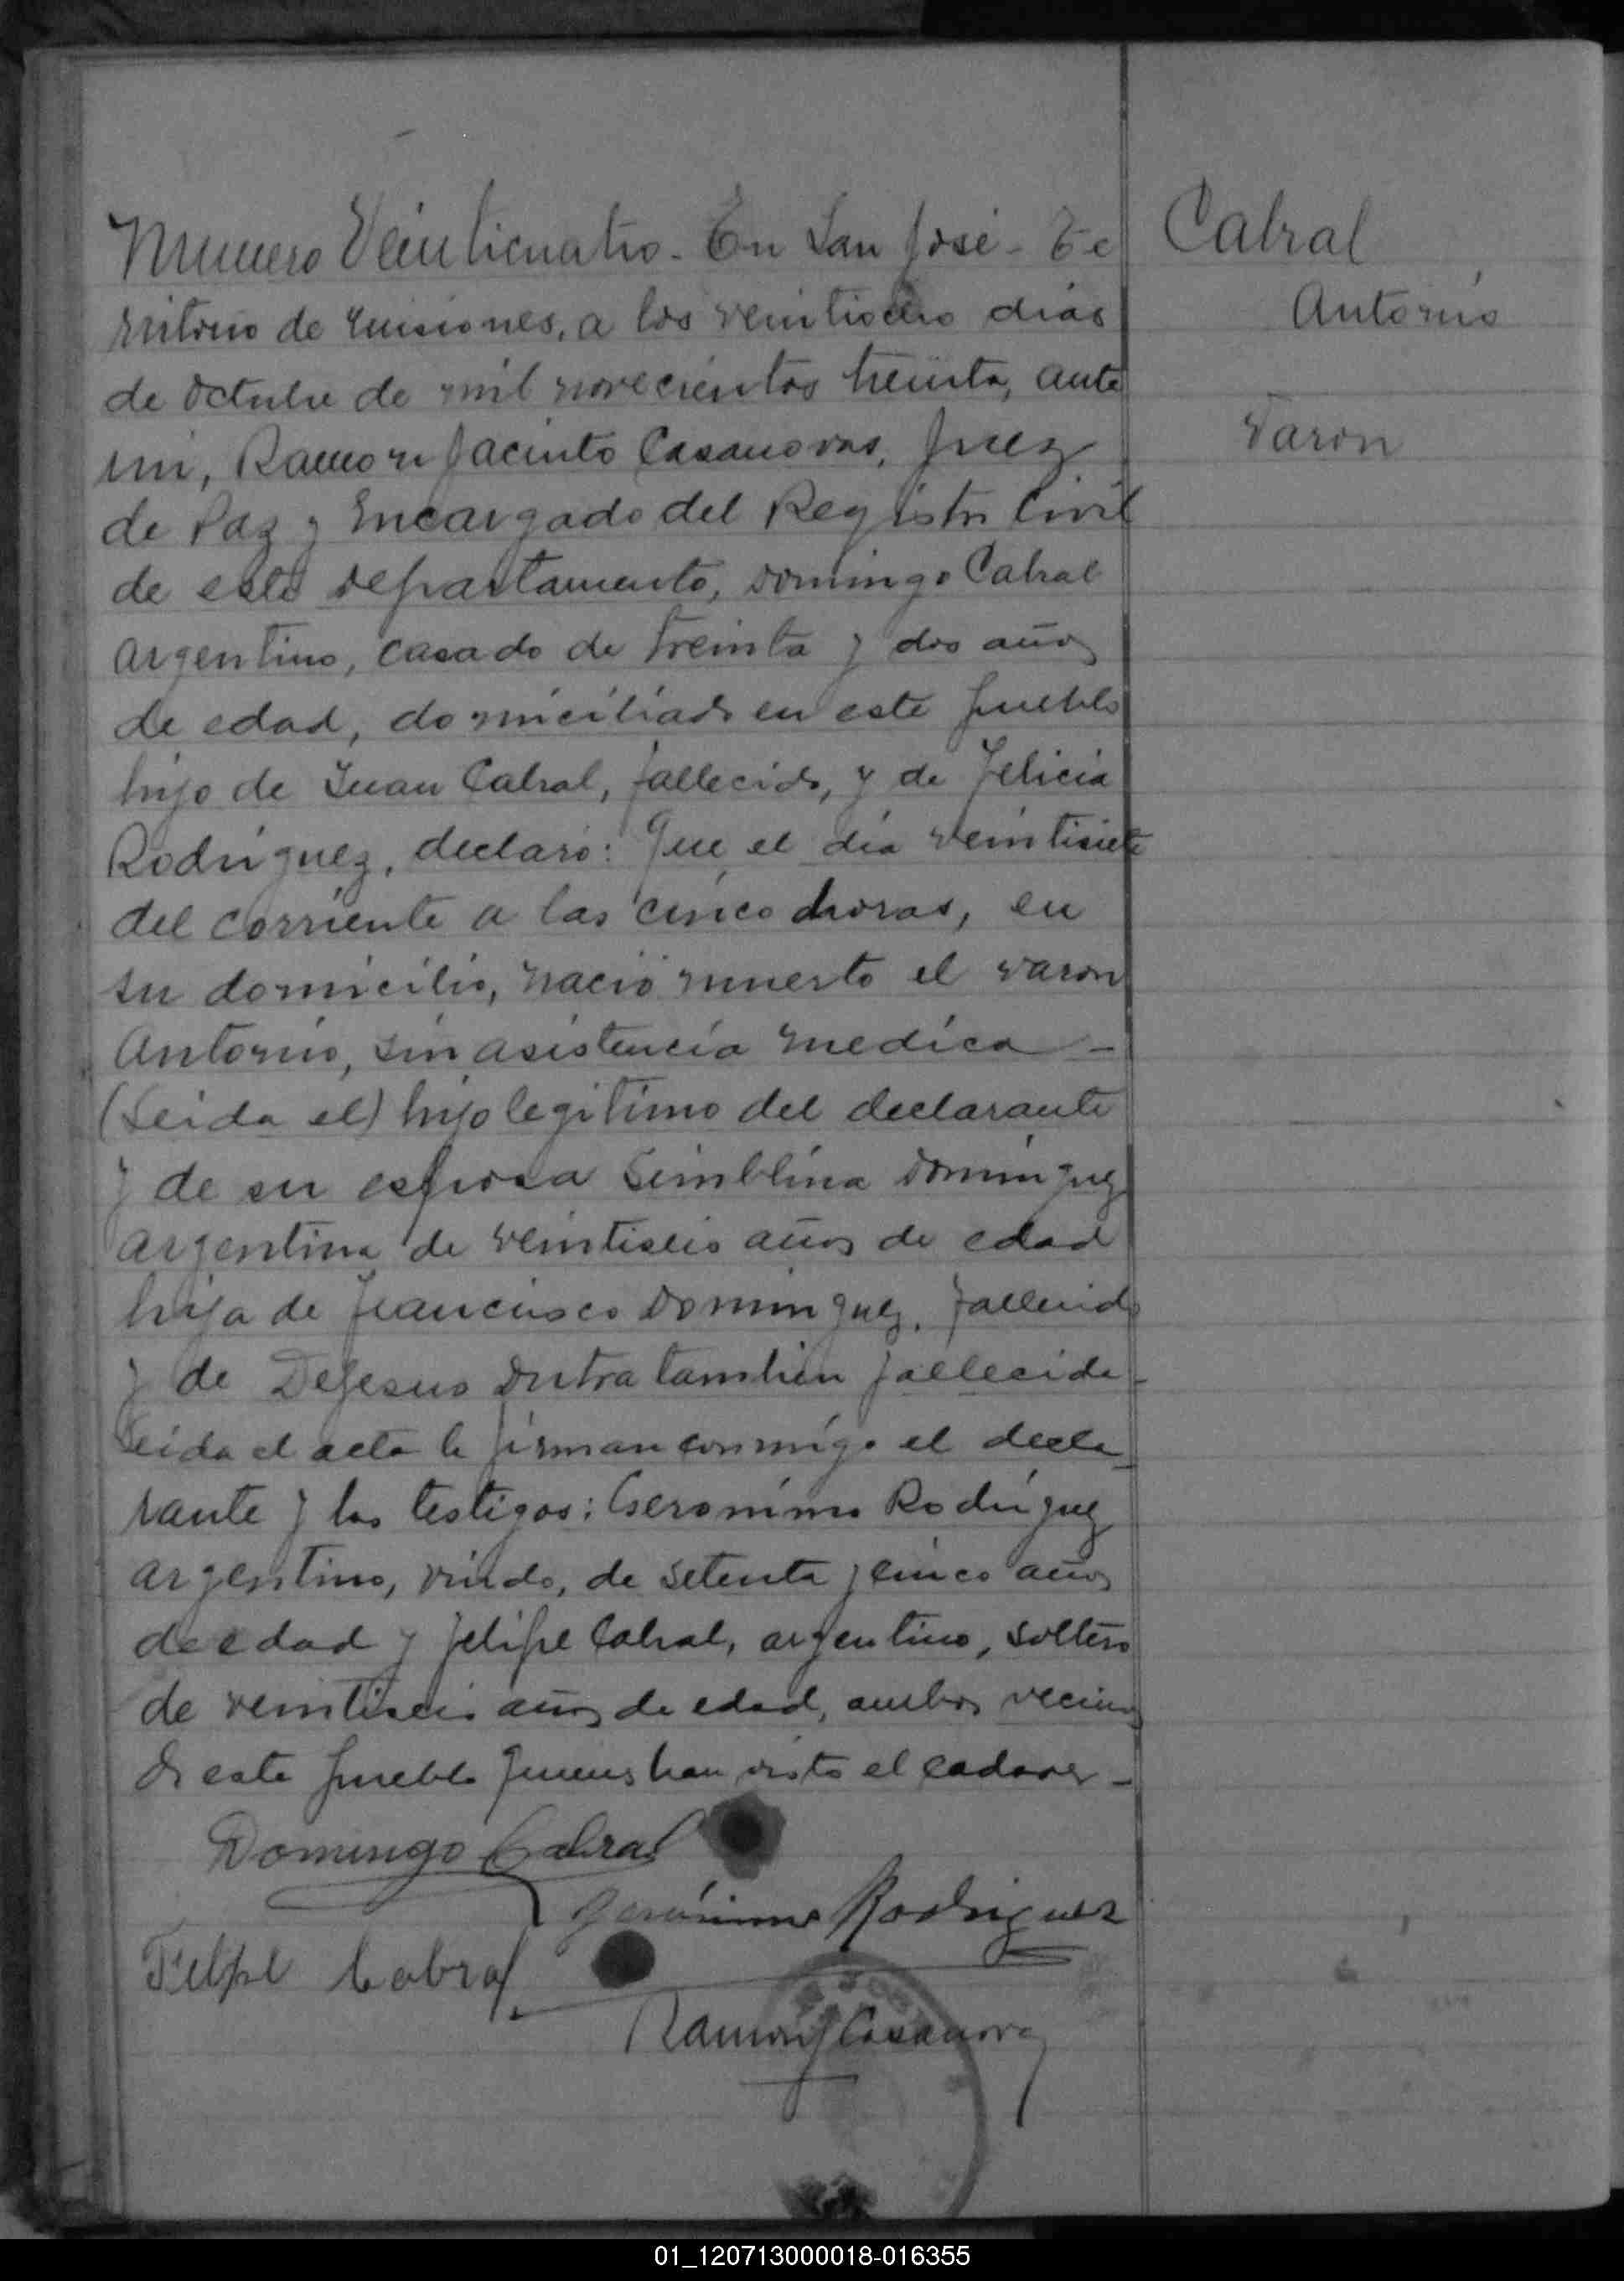 Numero Veinticuatro. En San José - Te
Cabral
rritorio de Misiones, a los veintiocho dias
Antonio
de Octubre de mil novecientos treinta, ante
mi, Ramon Jacinto Casanovas, Juez
Varon
de Paz y Encargado del Registro Civil
de este departamento, Domingo Cabral
argentino, casado de treinta y dos años
de edad, domiciliado en este pueblo
hijo de Juan Cabral, fallecido, y de Felicia
Rodriguez, declaró: Que el dia veintisiete
del corriente a las cinco horas, en
su domicilio, nació muerto el varon
Antonio, sin asistencia medica -
(Leida el) hijo legitimo del declarante
y de su esposa Dominguez
argentina de veintiseis años de edad
hija de Francisco Dominguez, fallecido
y de Dejesus Dutra tambien fallecida -
Leida el acta la firman conmigo el decla
rante y los testigos: Geronimo Rodriguez
argentino, viudo, de setenta y cinco años
de edad y Felipe Cabral, argentino, soltero
de veintiseis años de edad, ambos vecinos
de este pueblo quienes han visto el cadaver -
Domingo Cabral
Gerónimo Rodriguez
Felipe Cabral
Ramon J Casanova
01_120713000018-016355